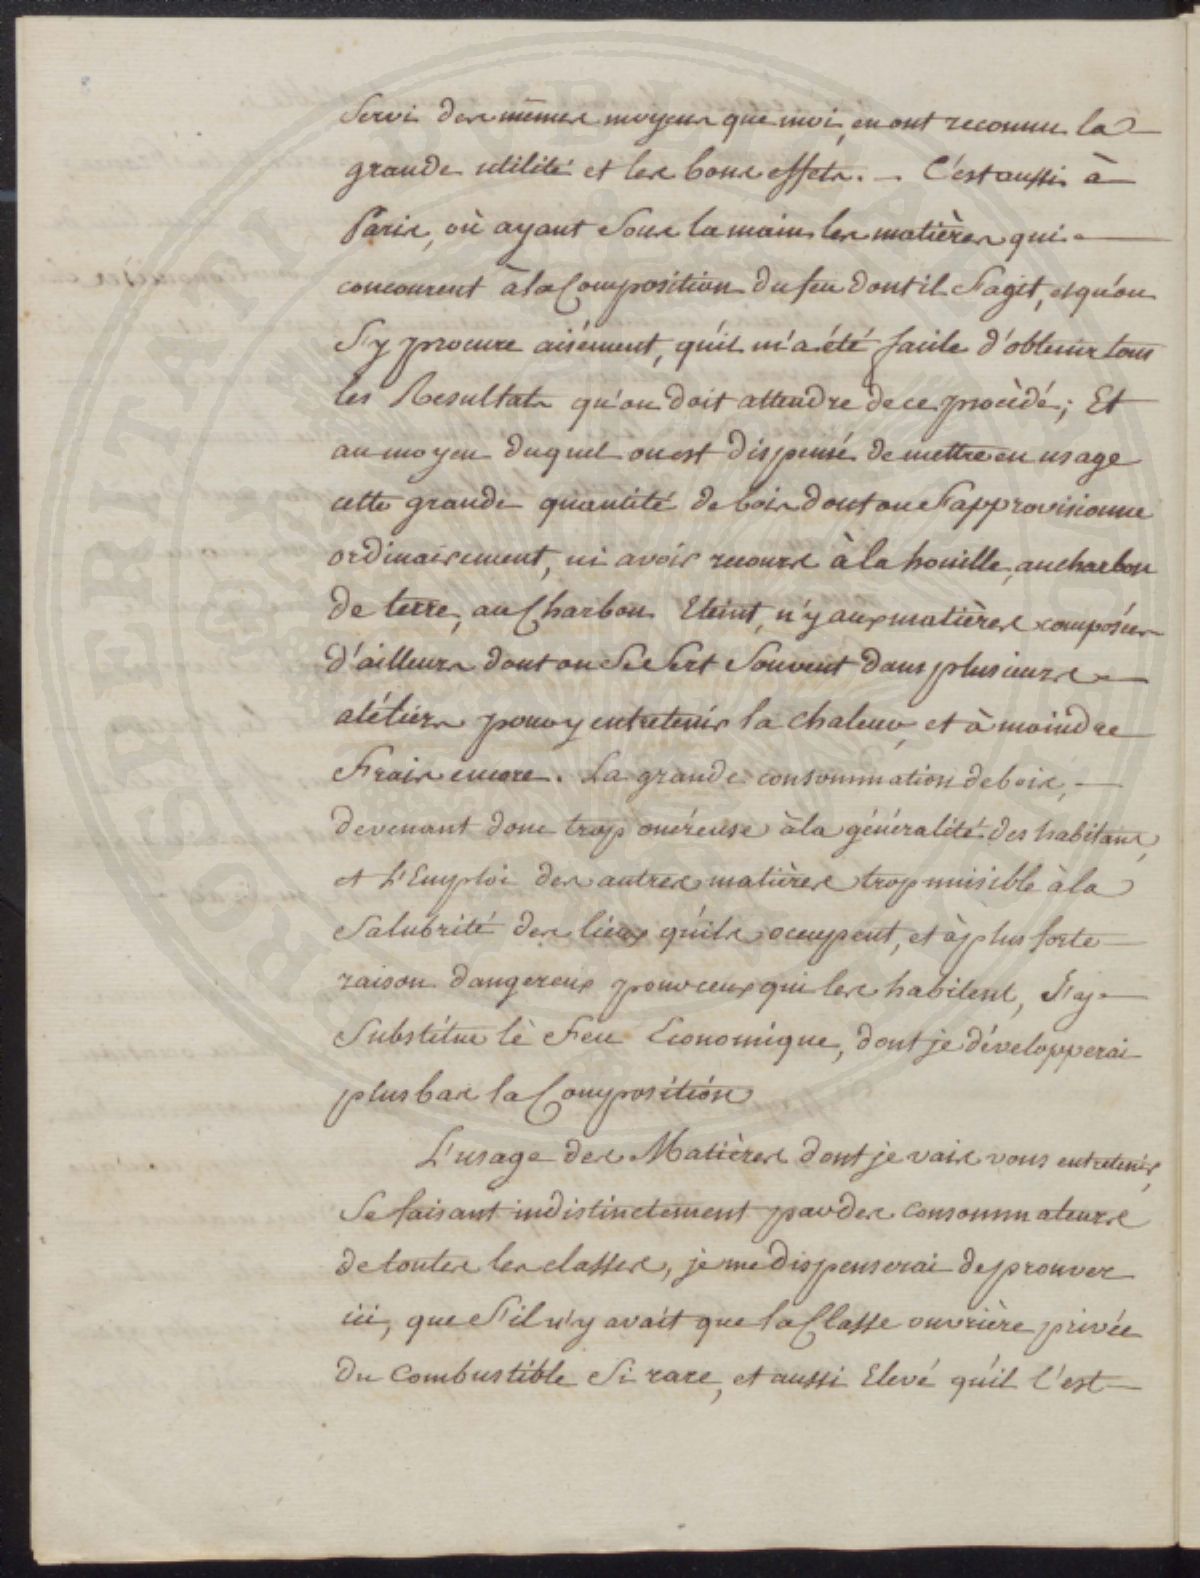 Servi des mêmes moyens que moi, en ont reconnu la
grande utilité et les bons effets. — C'est aussi à
Paris, où ayant Sous la main les matières qui
concourent à la Composition du feu dont il S'agit, et qu'on
S'y procure aisément, qu'il m'a été facile d'obtenir tous
les Resultats qu'on doit attendre de ce procèdé; Et
au moyen duquel on est dispensé de mettre en usage
cette grande quantité de bois dont on S'approvisionne
ordinairement, ni avoir recours à la houille, au charbon
de terre, au Charbon Eteint, n'y aux matières composées
d'ailleurs dont on Se Sert Souvent dans plusieurs
atéliers pour y entretenir la chaleur, et à moindre
Frais encore. La grande consommation de bois, —
devenant donc trop onéreuse à la généralité des habitans,
et L'Emploi des autres matières trop nuisible à la
Salubrité des lieux qu'ils occupent, et à plus forte
raison dangereux pour ceux qui les habitent, J'y
Substitue lè Feu Economique, dont je développerai
plus bas la Composition
L'usage des Matières dont je vais vous entretenir,
Se faisant indistinctement par des consommateurs
de toutes les classes, je me dispenserai de prouver
ici, que S'il n'y avait que la Classe ouvrière privée
du Combustible Si rare, et aussi Elevé qu'il l'est
PROSPERITATI PUBLICAE